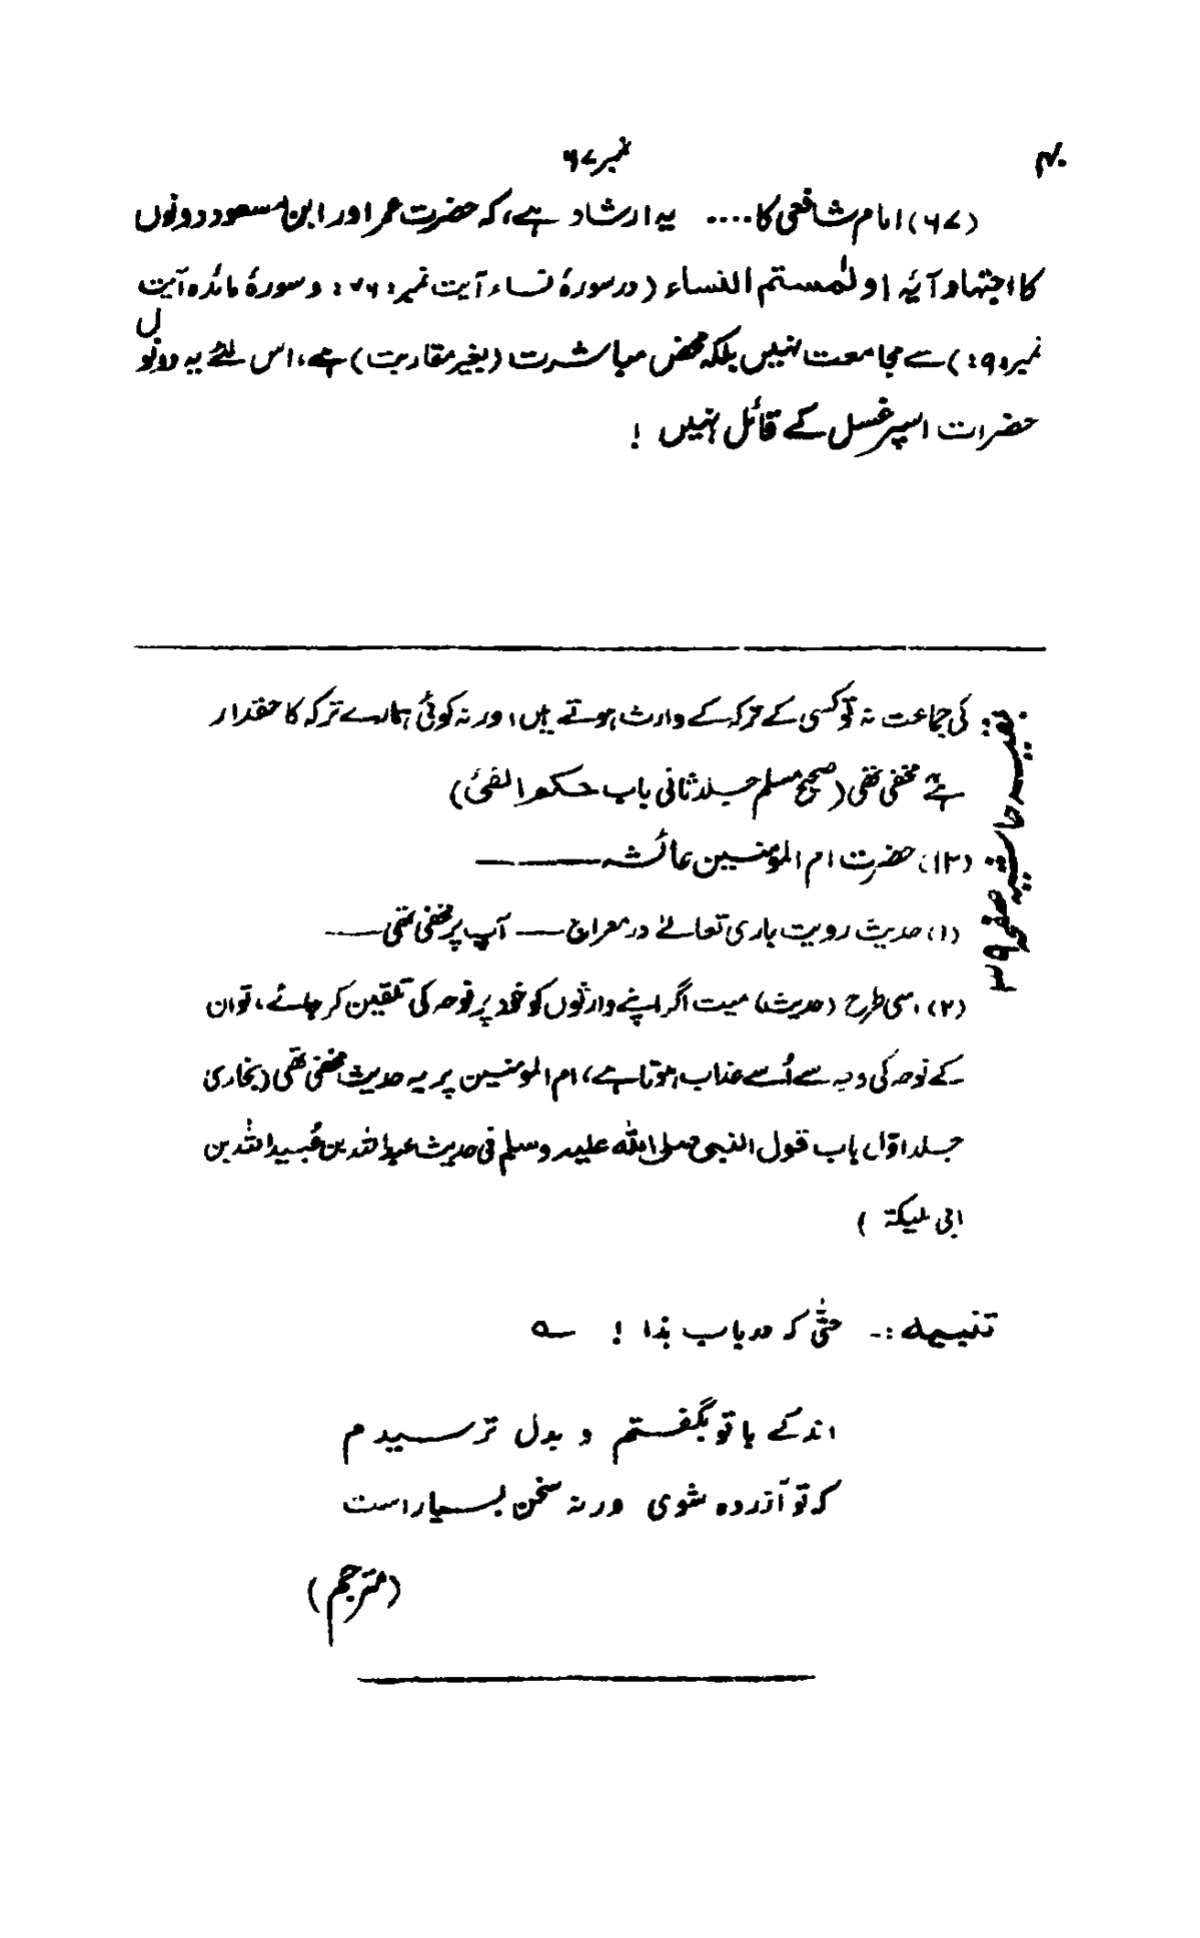 ۴۰
نمبر ۶۷
(۶۷) امام شافعی کا .... یہ ارشاد ہے، کہ حضرت عمر اور ابن مسعود دونوں
کا اجتہاد آیۂ اولٰمستم النساء (در سورۂ نساء آیت نمبر: ۷۶: و سورۂ مائدہ آیت
نمبر: ۹:) سے مجامعت نہیں بلکہ محض مباشرت (بغیر مقاربت) ہے، اس لئے یہ دونوں
حضرات اسپر غسل کے قائل نہیں !
بقیہ حاشیہ صفحہ ۳۹
کی جماعت نہ تو کسی کے ترکہ کے وارث ہوتے ہیں، اور نہ کوئی ہمارے ترکہ کا حقدار
ہے مخفی تھی (صحیح مسلم جلد ثانی باب حکم الفئ)
(۱۲) حضرت ام المؤمنین عائشہ ———
(۱) حدیث رویت باری تعالےٰ در معراج — آپ پر مخفی تھی —
(۲) اسی طرح (حدیث) میت اگر اپنے وارثوں کو خود پر نوحہ کی تلقین کر جائے، تو ان
کے نوحہ کی وجہ سے اُسے عذاب ہوتا ہے، ام المومنین پر یہ حدیث مخفی تھی (بخاری
جلد اوّل باب قول النبی صلی اللہ علیہ وسلم فی حدیث عبد اللہ بن عُبید اللہ بن
ابی ملیکۃ )
تنبیہہ :۔ حتّٰی کہ در باب ہذا ! ؎
اندکے با تو بگفتم و بدل ترسیدم
کہ تو آزردہ شوی ورنہ سخن بسیار است
(مترجم)